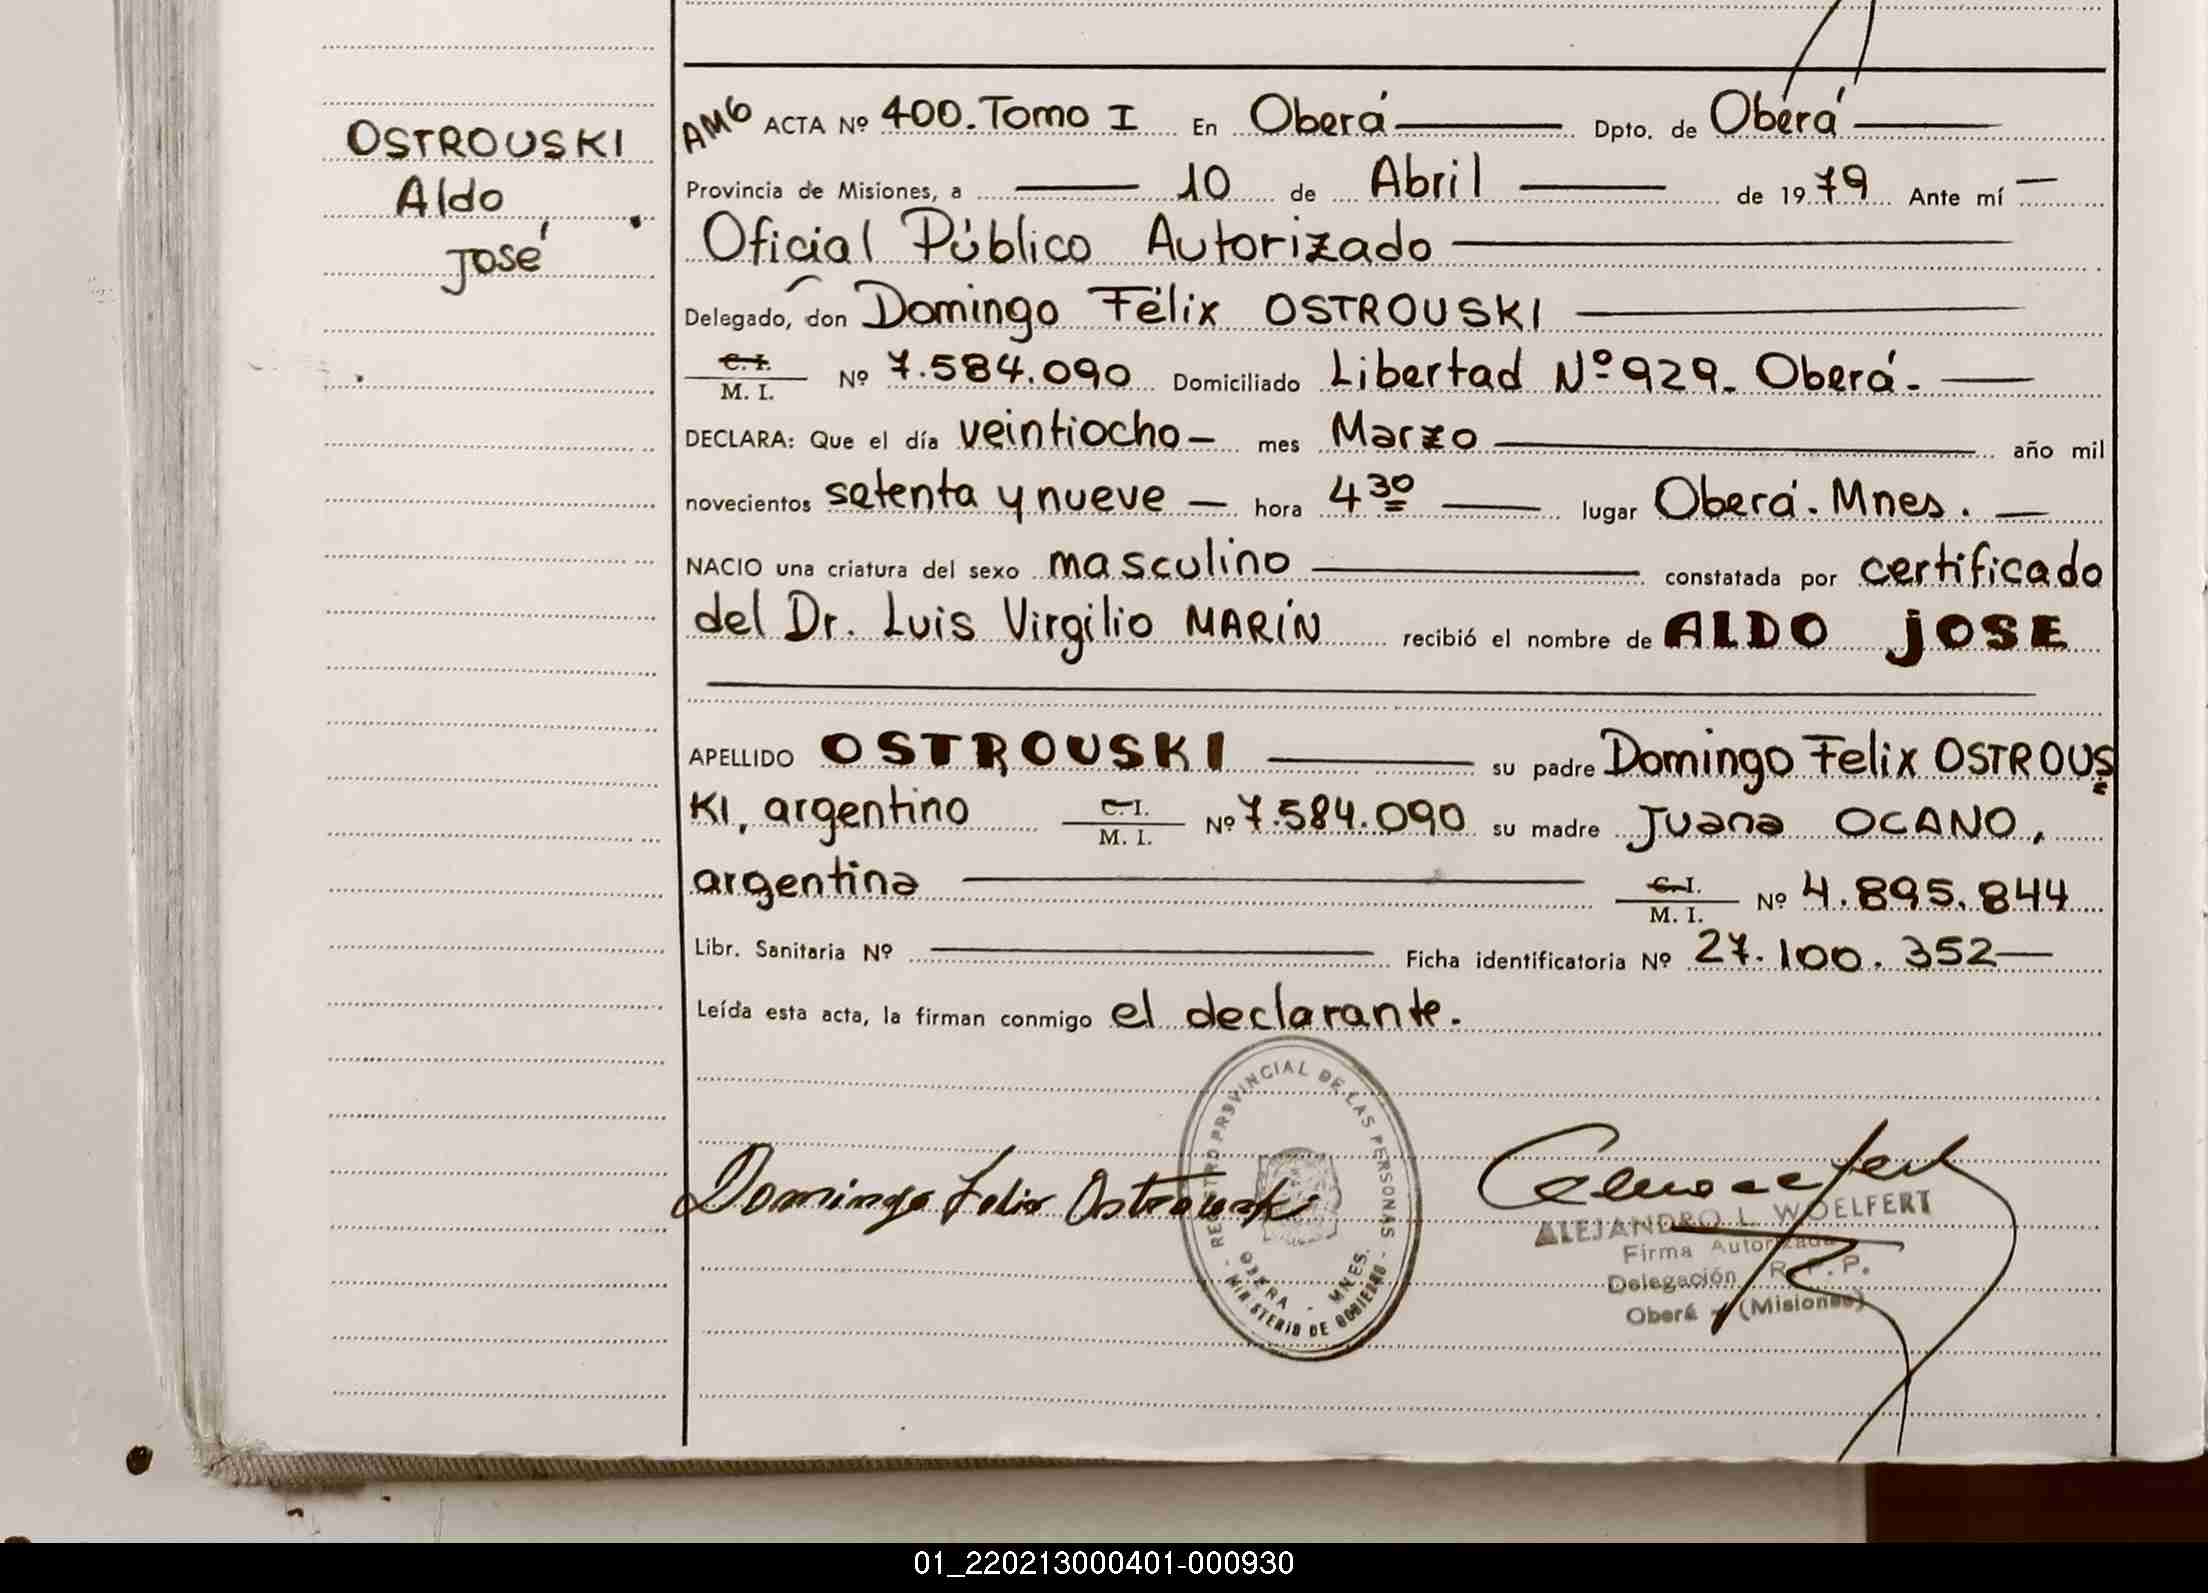 OSTROUSKI
Aldo
José
AMG ACTA Nº 400. Tomo I En Oberá Dpto. de Oberá
Provincia de Misiones, a 10 de Abril de 1979 Ante mí
Oficial Público Autorizado
Delegado, don Domingo Félix OSTROUSKI
C. I. / M. I. Nº 7.584.090 Domiciliado Libertad Nº 929. Oberá.
DECLARA: Que el día veintiocho mes Marzo año mil
novecientos setenta y nueve hora 4 30 lugar Oberá. Mnes.
NACIO una criatura del sexo masculino constatada por certificado
del Dr. Luis Virgilio MARÍN recibió el nombre de ALDO JOSE
APELLIDO OSTROUSKI su padre Domingo Felix OSTROUS
KI, argentino C. I. / M. I. Nº 7.584.090 su madre Juana OCANO,
argentina C. I. / M. I. Nº 4.895.844
Libr. Sanitaria Nº Ficha identificatoria Nº 27.100.352
Leída esta acta, la firman conmigo el declarante.
- REGISTRO PROVINCIAL DE LAS PERSONAS -
OBERA - MNES.
MINISTERIO DE GOBIERNO
Domingo Felix Ostrouski
ALEJANDRO L. WOELFERT
Firma Autorizada
Delegación R. P. P.
Oberá - (Misiones)
01_220213000401-000930